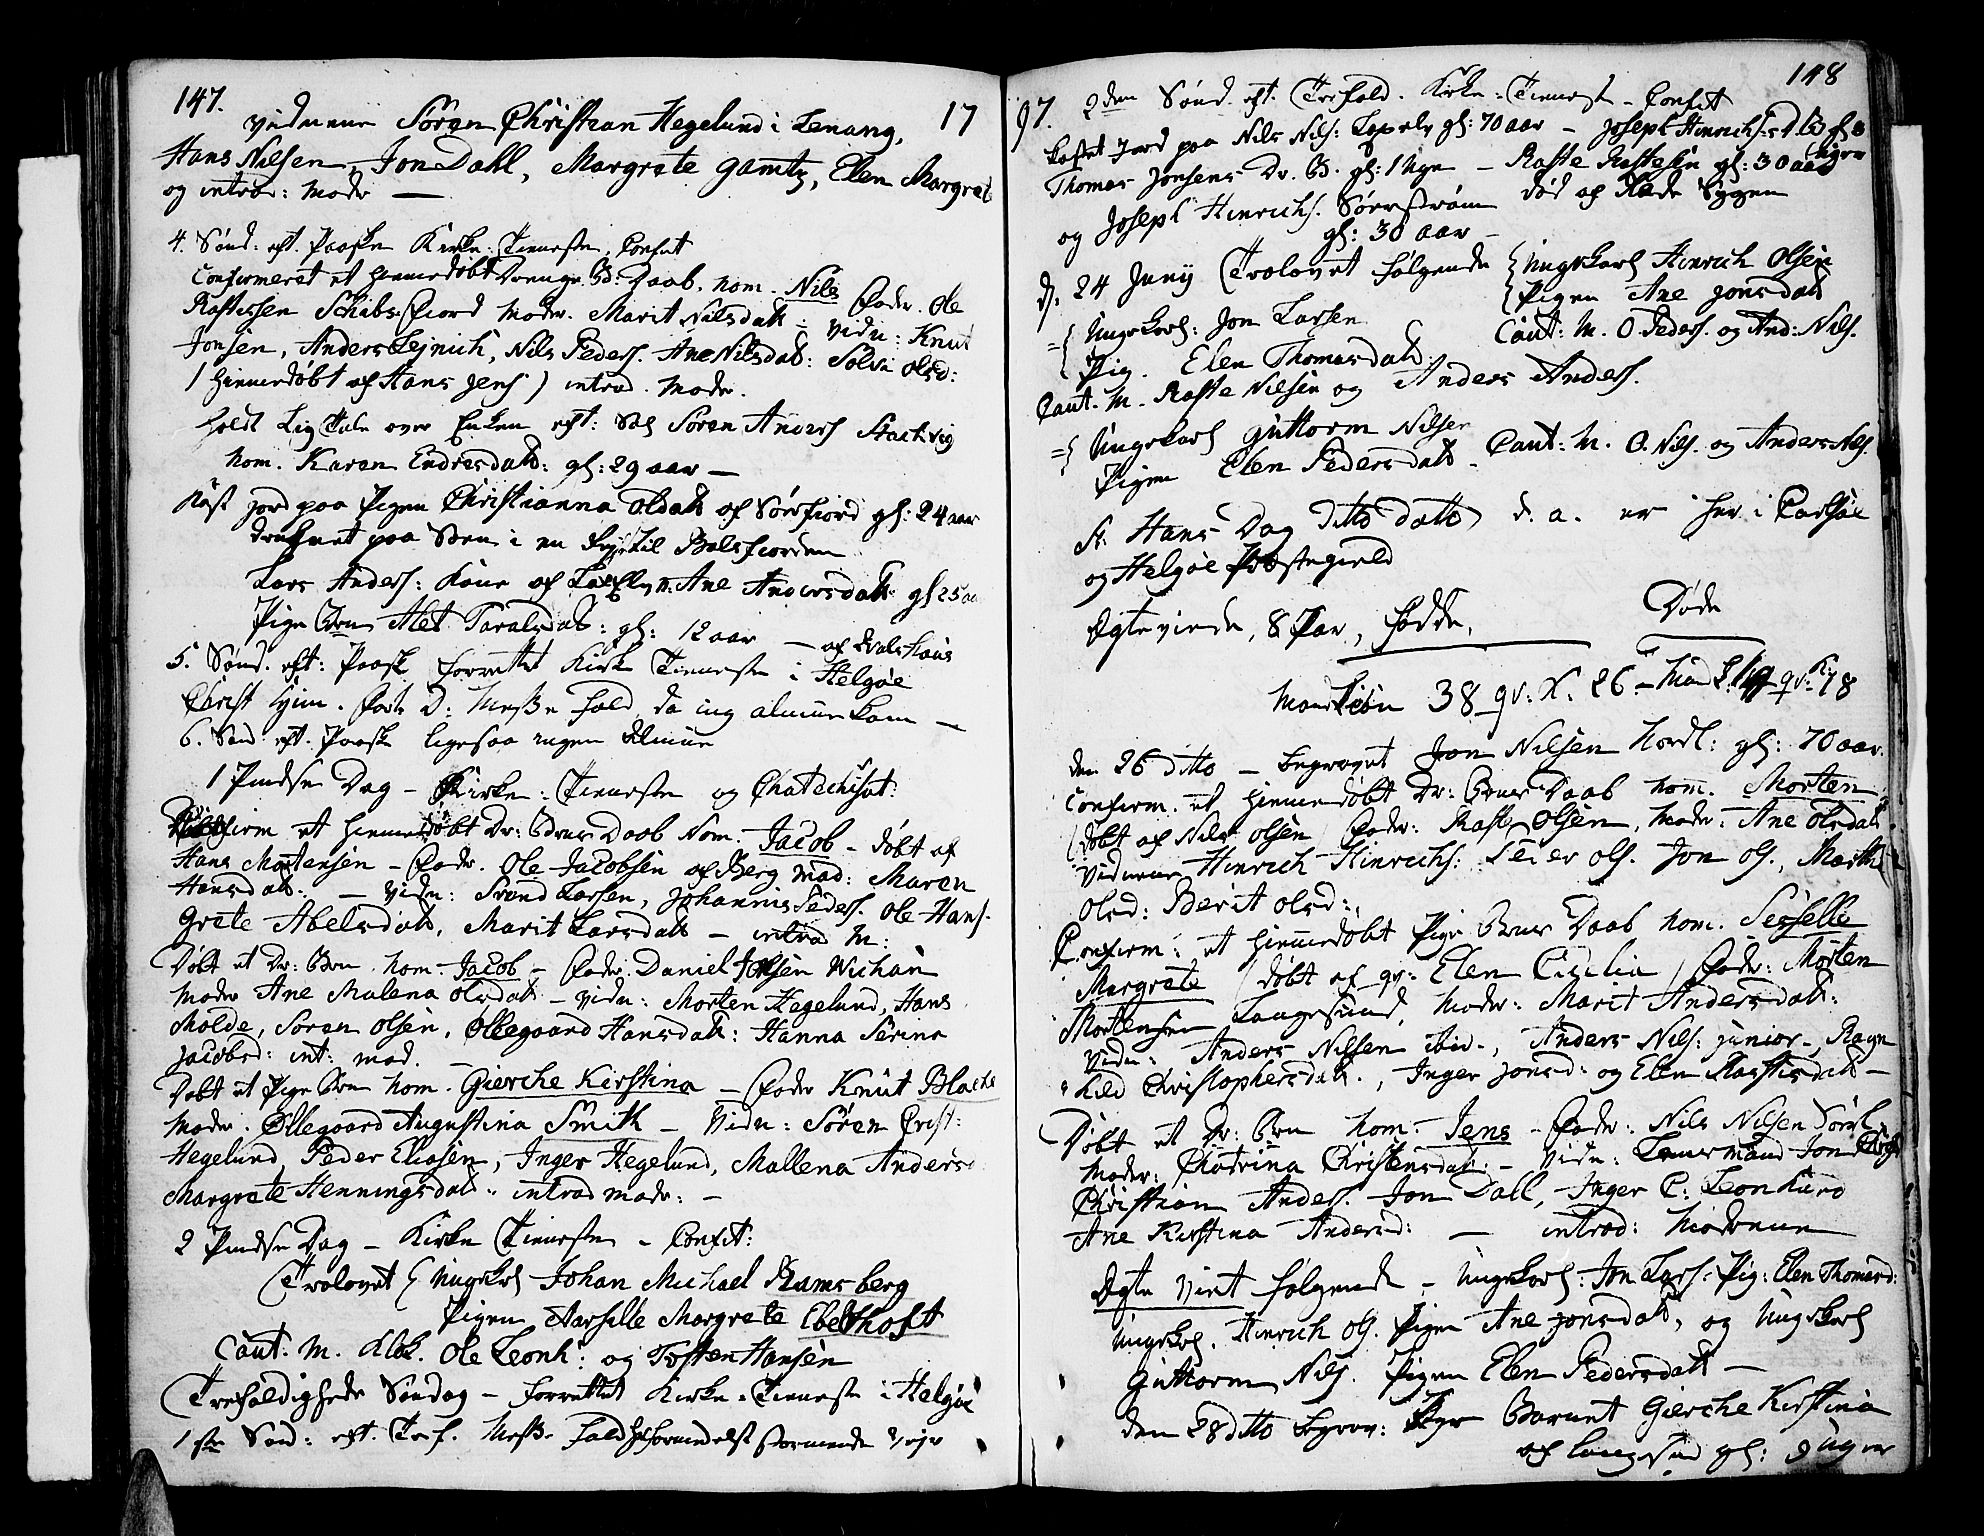 147.
17
vidnerne Sören Christian Hegelund i Lenang,
Hans Nilsen, Jon Dahl, Margrete Gamtz, Elen Margret
og introd: Modr —
4. Sönd: eft. Paaske Kirke-Tienesten, Confit
Confirmeret et hiemmedöbt Drenge B. Daab, nom. Nils Fadr. Ole
Rastesen Schibs-Fiord Modr. Marit Nilsdatr: Vidn: Knut
Jonsen, Anders Lejnich, Nils Peders. Ane Nilsdatr: Solvi Olsd:
( hiemmedöbt af Hans Jens ) introd. Modr.
holdt Lig Tale over Enken eft: Sal Sören Anders
nom. Karen Endresdatr: gl: 29 aar —
Kast jord paa Pigen Christianna Olsdatr af Sörfiord gl: 24 aar
druknet paa Söen i en til Balsfiorden
Lars Anders: Kone af Ane Andersdatr gl 25 aar
Pige Brn Alet Taralsdatr: gl: 12 aar — af
5. Sönd. eft: Paask forrettet Kirke Tienesten i Helgöe
Christ Hjm. Fort D: Messe fald da ing almue kom —
6. Sönd eft. Paask ligesaa ingen Almue
1 Pindse Dag — Kirke-Tienesten og Chatechisat:
Confirm et hiemmedöbt Dr: Brns Daab Nom. Jacob — döbt af
Hans Mortensen — Fadr. Ole Jacobsen af Berg Mod: Maren
Hansdatr: — Vidn: Trond Larsen, Johannis Peders. Ole Hans.
Grete Abelsdatr, Marit Larsdatr — introd M:
Döbt et Dr: Brn nom. Jacob — Fadr. Daniel Wichan
Modr Ane Malena Olsdatr — Vidn: Morten Hegelund, Hans
Molde, Sören Olsen, Ollegaard Hansdatr: Hanna Serina
Jacobsd: int: mod. —
Döbt et Pige Brn nom. Gierche Kirstina — Fadr Knut
Modr. Ollegaard Augustina Smith — Vidn: Sören Crist:
Hegelund, Peder Eliasen, Inger Hegelund, Mallena Andersd
Margrete Henningsdatr: introd modr: —
2 Pindse Dag — Kirke Tienesten — Confit:
Trolovet { Ungekarl Johan Michael Ramsberg
Pigen Margrete Ebelthoft
Caut. M. Ole Leonh: og Tosten Hansen
Trefoldigheds Söndag — forrettet Kirke-Tieneste i Helgöe
1ste Sönd: eft. Tref. Messe fald formedelst stormende Vejr
148
97. 2den Sönd. eft. Trefold. Kirke-Tieneste — Confit
kastet Jord paa Nils Nils: gl: 70 aar — Joseph Hinrichs:
Thomas Jonsens Dr. B. gl: 1 Uge — Raste Rastesen gl: 30 aar
og Joseph Hinrichs. Sörstrom död af Röde Sygen
gl: 30 aar —
D: 24 Junij Trolovet fölgende { Ungekarl Hinrich Olsen
{ Pigen Ane Jonsdatr
={ Ungekarl: Jon Larsen
Caut: M. O Peders. og And: Nils.
Pig. Elen Thomasdatr.
Caut. M. Raste Nilsen og Anders Anders.
={ Ungekarl Guttorm Nilsen
Pigen Elen Pedersdatr — Caut: M. O. Nils. og Anders Nils.
St. Hans Dag Ditto dato d. a. er her i Carlsöe
og Helgöe Præstegield
Ægteviede, 8 Par, Födde, Döde
Mandkiön 38 qv: K. 26 — Mand K: qv: K: 18
den 26 ditto — begravet Jon Nilsen Nordl: gl: 70 aar.
Confirm. et hiemmedöbt Dr: Brns Daab nom. Morten
(döbt af Nils Olsen) Fadr: Raste Olsen, Modr: Ane Olsdatr
Vidnerne Hinrich Hinrichs: Seier Ols. Jon Ols., Marthe
Olsd: Berit Olsd:
Confirm: et hiemmedöbt Pige Brns Daab nom. Sesselle
Margrete (döbt af qv: Elen Cicilia) Fadr: Morten
Mortensen Langesund, Modr: Marit Andersdatr:
Vidn: Anders Nilsen ibid., Anders Nils: junior, Ragn
hild Christophersdatr., Inger Jonsd: og Elen Rastesdatr —
Döbt et Dr: Brn nom. Jens — Fadr: Nils Nilsen
Modr: Chatrina Christensdatr: — Vidn: Lensmand Jon
Christian Anders. Jon Dall, Inger C: Leonhard
Ane Kirstina Andersd: — introd: Moderne
Ægte Viet fölgende — Ungekarl: Jon Lars: Pig: Elen Thomasd:
Ungekl. Hinrich Ols. Pigen Ane Jonsdatr, og Ungekarl
Guttorm Nils. Pigen Elen Pedersdatr —
den 28 ditto begrav: Pige Barnet Gierche Kirstina
af Langsund gl: 9 Uger